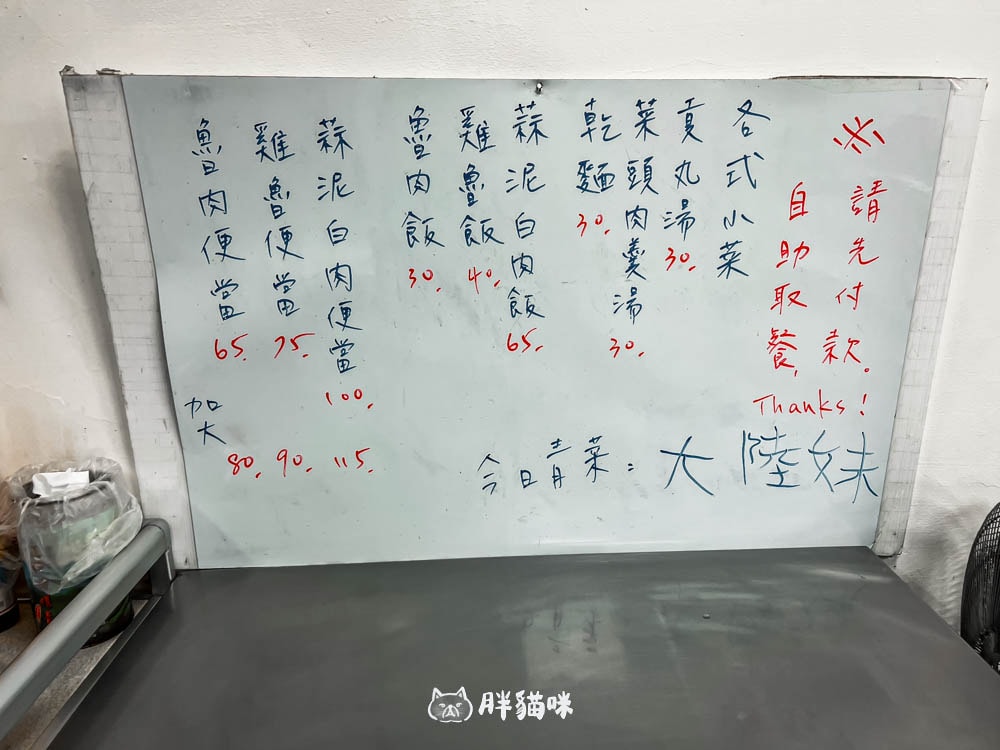 ※
請先付款。
自助取餐,
Thanks!
各式小菜
貢丸湯 30.
菜頭肉羹湯 30.
乾麵 30.
蒜泥白肉飯 65.
雞魯飯 40.
魯肉飯 30.
蒜泥白肉便當 100.
雞魯便當 75.
魯肉便當 65.
加大 80. 90. 115.
今日青菜: 大陸妹
胖貓咪